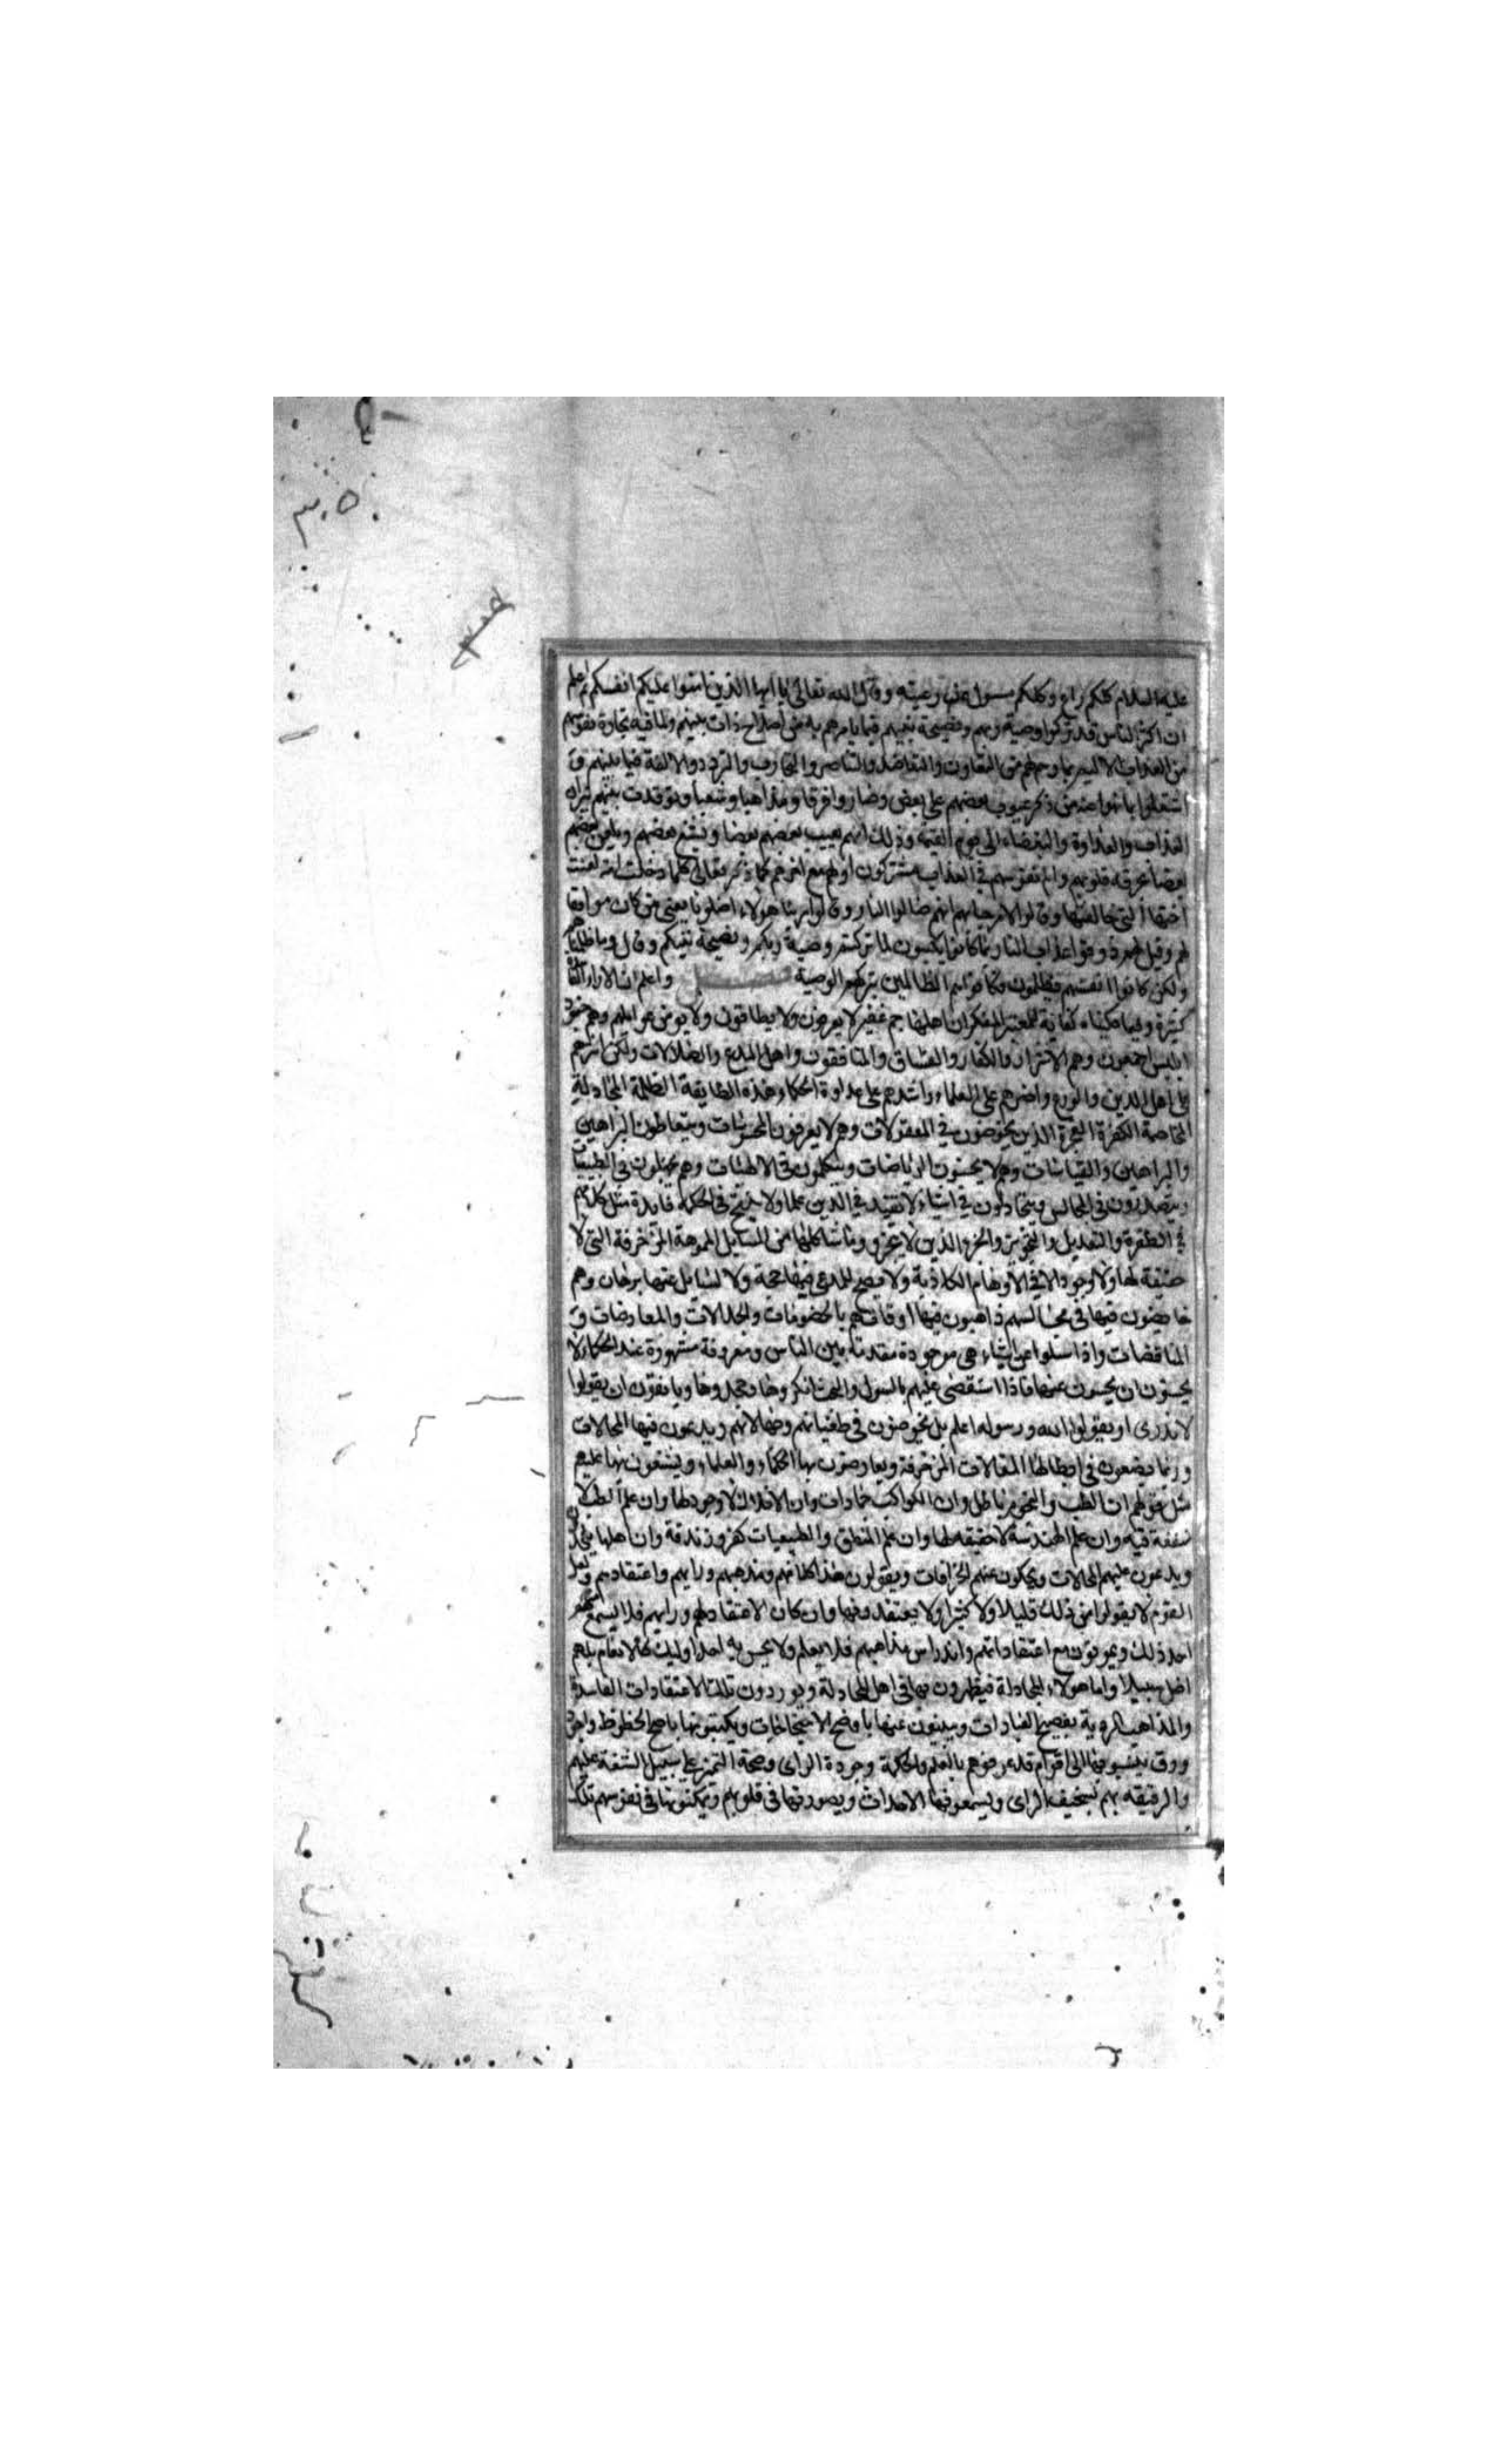 ٣٠٥
٣٠٥
عليه السلام كلكم راع وكلكم مسول عن رعيته وقال الله تعالى يا ايها الذين امنوا عليكم انفسكم ثم اعلم
ان اكثر الناس قد تركوا وصية ربهم ونصيحة نبيهم فيما يامرهم به من اصلاح ذات بينهم ولما فيه نجاة نفوسهم
من العذاب الاليم بما وصاهم من التعاون والتعاضد والتناصر والتعارف والتودد والالفة فيما بينهم وقد
اشتغلوا بما نهوا عنه من ذكر عيوب بعضهم على بعض وصاروا فرقا ومذاهبا وشعبا وتوقدت بينهم نيران
العذاب والعداوة والبغضاء الى يوم القيمة وذلك انهم يعيب بعضهم بعضا ويشنع بعضهم ويلعن بعضهم
بعضا بحرقة قلوبهم والم نفوسهم في العذاب مشتركون اولهم مع اخرهم كما ذكر تعالى كلما دخلت امة لعنت
اختها التي خالفتها وقالوا لا مرحبا بهم انهم صالوا النار وقالوا ربنا هولاء اضلونا يعني من كان موافقا
لهم وقيل لهم ذوقوا عذاب النار بما كانوا يكسبون لما تركتم وصية ربكم ونصيحة نبيكم وقال وما ظلمناهم
ولكن كانوا انفسهم يظلمون فكانوا هم الظالمين بتركهم الوصية فصل واعلم ان الاراء الفاسدة
كثيرة وفيما حكيناه كفاية للمعتبر المفكر ان اهلها جم غفير لا يعرفون ولا يطاقون ولا يومن غوايلهم وهم جنود
ابليس اجمعون وهم الاشرار والكفار والفساق والمنافقون واهل البدع والضلالات ولكن اشرهم
على اهل الدين والورع واضرهم على العلماء واشدهم على عداوة الحكماء هذه الطايفة الظلمة المجادلة
المخاصمة الكفرة الفجرة الذين يخوضون في المعقولات وهم لا يعرفون المحسوسات ويتعاطون البراهين
والبراهين والقياسات وهم لا يحسنون الرياضات ويتكلمون في الالهيات وهم يجهلون في الطبيعيات
ويتصدرون في المجالس ويتجادلون في اشياء لا تفيد في الدين علما ولا ينتج في الحكمة فايدة مثل كلامهم
في الطفرة والتعديل والتجوير والجزو الذي لا يتجزو وما شاكلها من المسايل المموهة المزخرفة التي لا
حقيقة لها ولا وجود الا في الاوهام الكاذبة ولا يصح للمدعي فيها حجة ولا لسايل عنها برهان وهم
خايضون فيها في مجالسهم ذاهبون فيها اوقاتهم بالخصومات والجدالات والمعارضات و
المناقضات واذا سلوا عن اشياء هي موجودة مقدمة بين الناس ومعروفة مشهورة عند الحكماء لا
يحسنون ان يجيبون عنها فاذا استقصي عليهم بالسول والبحث انكروها وجحدوها ويانفون ان يقولوا
لا ندري او يقولوا الله ورسوله اعلم بل يخوضون في طغيانهم وضلالاتهم ويدعون فيها المحالات
وربما يضعون في ابطالها المقالات المزخرفة ويعارضون بها الحكماء والعلماء ويشنعون بها عليهم
مثل قولهم ان الطب والنجوم باطل وان الكواكب جمادات وان الافلاك لا وجود لها وان علم الطب لا
منفعة فيه وان علم الهندسة لا حقيقة لها وان علم المنطق والطبيعيات كفر وزندقة وان اهلها ملحدون
ويدعون عليهم المحالات ويحكون عنهم الخرافات ويقولون هذا كلامهم ومذهبهم ورايهم واعتقادهم ولعل
القوم لا يقولوا من ذلك قليلا ولا كثيرا ولا يعتقدونها وان كان الاعتقاد لهم ورايهم فلا يسمع منهم
احد ذلك ويموتون مع اعتقاداتهم واندراس مذاهبهم فلا يعلم ولا يحس به احد اوليك كالانعام بل هم
اضل سبيلا واما هولاء المجادلة فيظهرون بها في اهل المجادلة ويوردون تلك الاعتقادات الفاسدة
والمذاهب الردية بفصيح العبارات ويبينون عنها باوضح الاحتجاجات ويكتبونها باصح الخطوط واجود
ورق ينسبونها الى اقوام قد عرفوهم بالعلم والحكمة وجودة الراي وصحة التميز على سبيل الشنعة عليهم
والوقيعة بهم لسخيف الراي ويسمعونها الاحداث ويصورونها في قلوبهم ويمكنونها في نفوسهم تلك